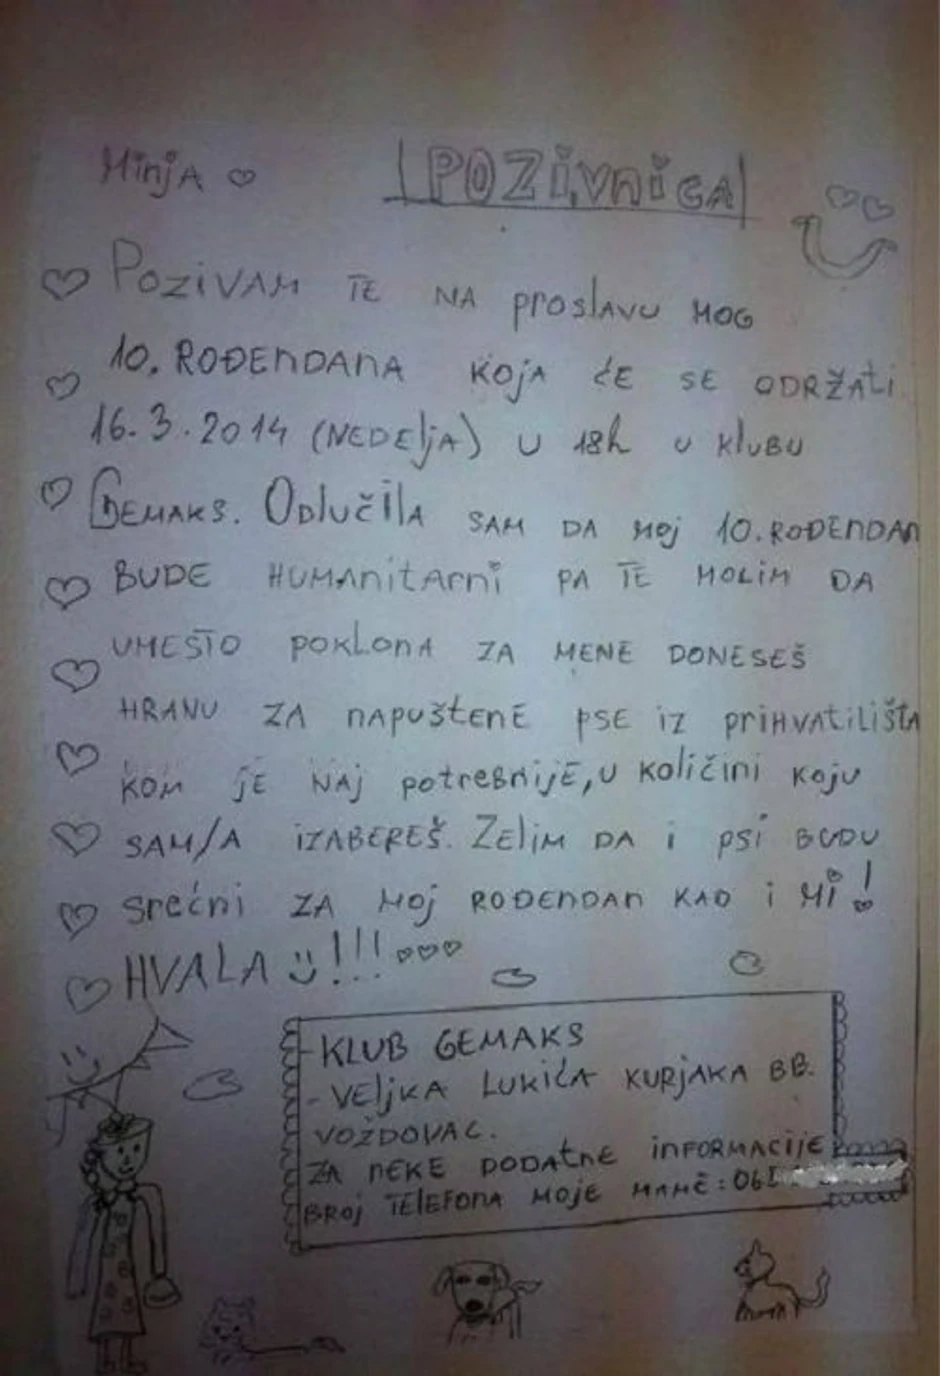 Minja
POZIVNICA
POZIVAM TE NA proslavu MOG
10. ROĐENDANA KOJA ĆE SE ODRŽATI
16.3.2014 (NEDELJA) U 18h U KLUBU
GEMAKS. ODLUČILA SAM DA MOJ 10. ROĐENDAN
BUDE HUMANITARNI PA TE MOLIM DA
UMESTO POKLONA ZA MENE DONESEŠ
HRANU ZA NAPUŠTENE PSE IZ PRIHVATILIŠTA
KOM JE NAJ POTREBNIJE, U KOLIČINI KOJU
SAM/A IZABEREŠ. ZELIM DA I PSI BUDU
SREĆNI ZA MOJ ROĐENDAN KAO I MI!
HVALA !!!
-KLUB GEMAKS
-VELJKA LUKIĆA KURJAKA BB.
VOŽDOVAC.
ZA NEKE DODATNE INFORMACIJE
BROJ TELEFONA MOJE MAME: 06